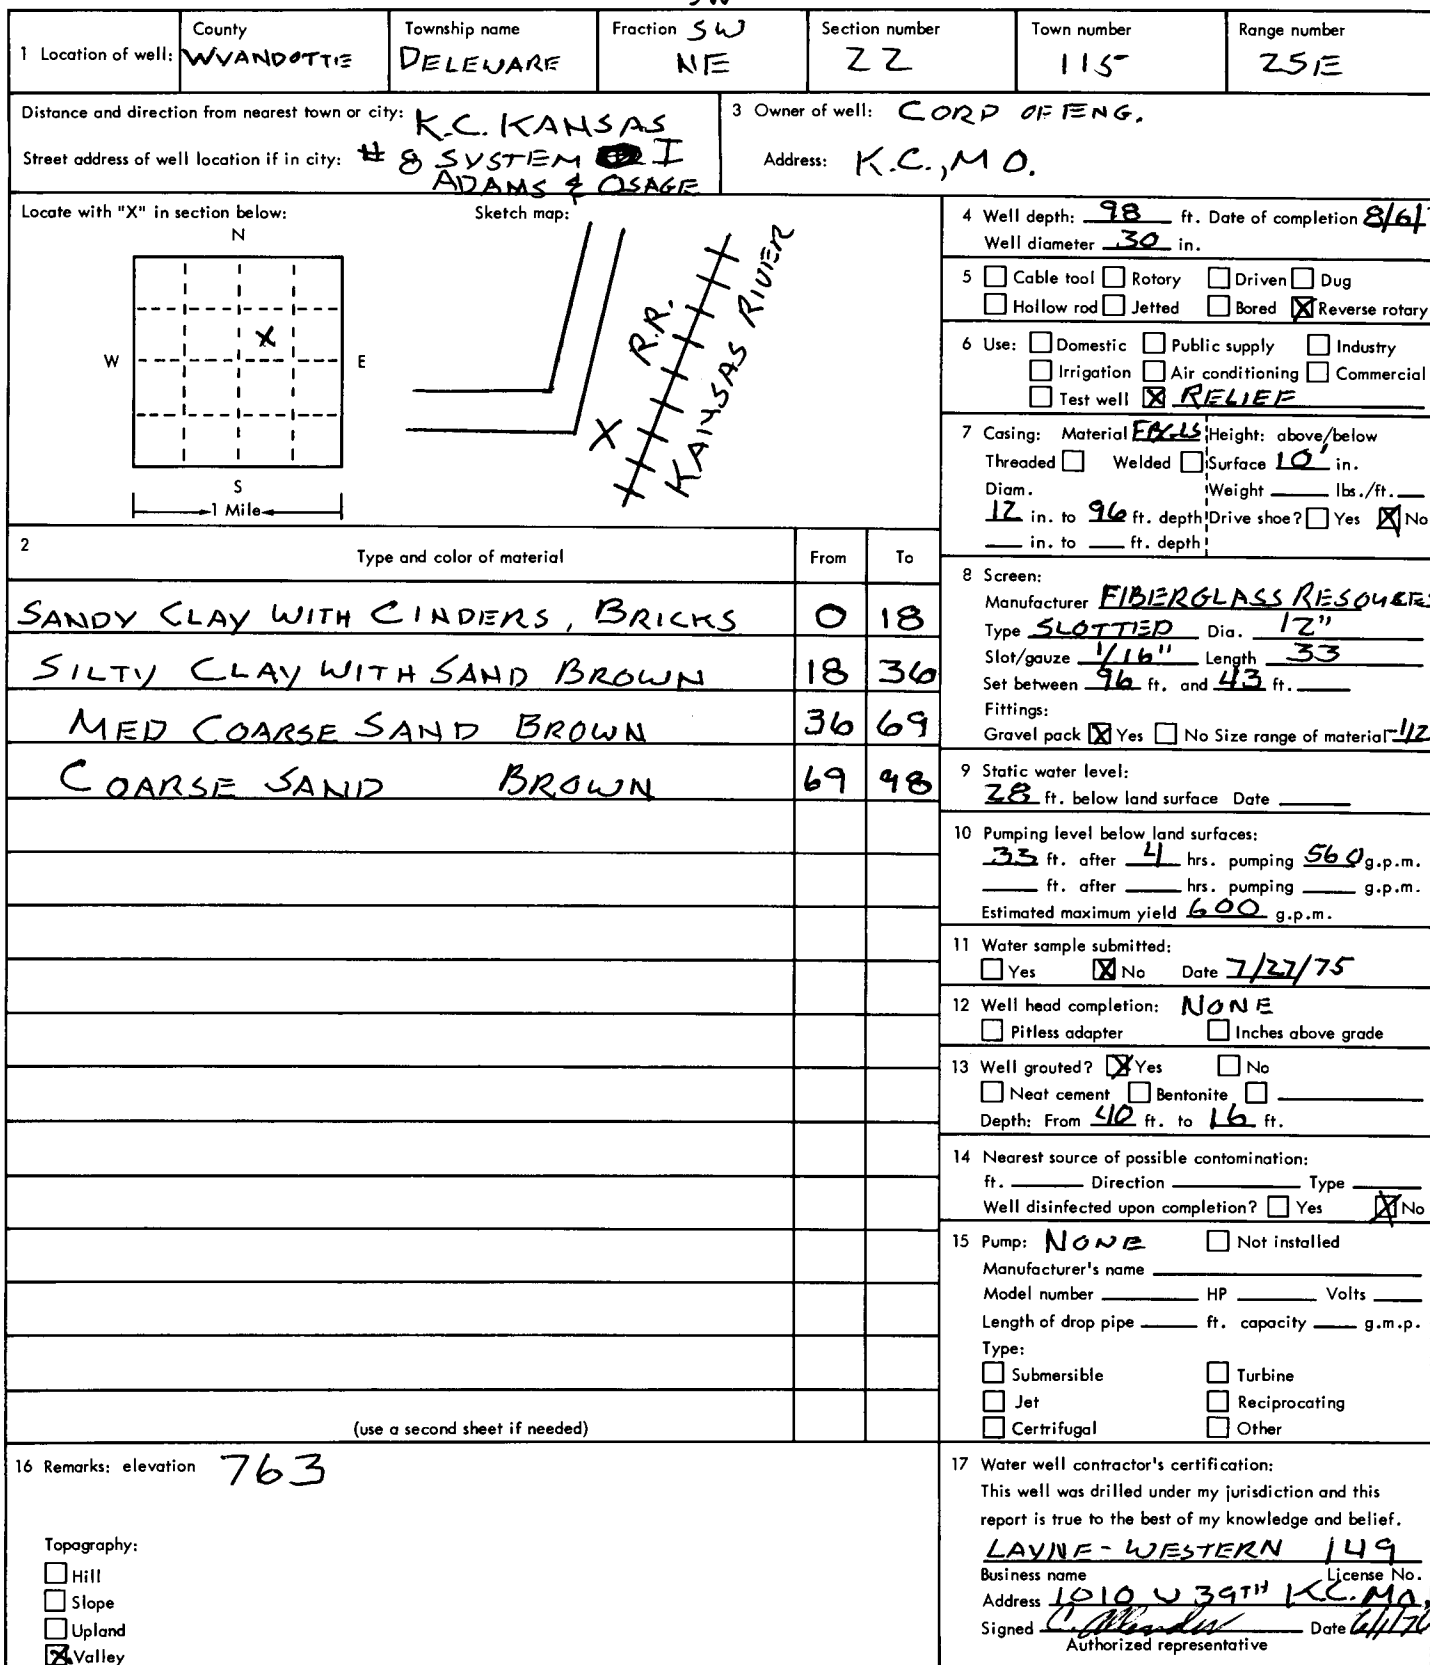 SW
1 Location of well: County WYANDOTTE Township name DELEWARE Fraction SW NE Section number 22 Town number 11S Range number 25E
Distance and direction from nearest town or city: K.C. KANSAS
Street address of well location if in city: # 8 SYSTEM I
ADAMS & OSAGE
3 Owner of well: CORP OF ENG.
Address: K.C., MO.
Locate with "X" in section below:
N
W X E
S
1 Mile
Sketch map:
R.R.
KANSAS RIVER
X
2 Type and color of material From To
SANDY CLAY WITH CINDERS, BRICKS 0 18
SILTY CLAY WITH SAND BROWN 18 36
MED COARSE SAND BROWN 36 69
COARSE SAND BROWN 69 98
(use a second sheet if needed)
4 Well depth: 98 ft. Date of completion 8/6/
Well diameter 30 in.
5 Cable tool Rotory Driven Dug
Hollow rod Jetted Bored X Reverse rotary
6 Use: Domestic Public supply Industry
Irrigation Air conditioning Commercial
Test well X RELIEF
7 Casing: Material FBGLS Height: above/below
Threaded Welded Surface 10' in.
Diam. Weight lbs./ft.
12 in. to 96 ft. depth Drive shoe? Yes X No
in. to ft. depth
8 Screen:
Manufacturer FIBERGLASS RESOURCES
Type SLOTTED Dia. 12"
Slot/gauze 1/16" Length 33
Set between 96 ft. and 43 ft.
Fittings:
Gravel pack X Yes No Size range of material -1/2
9 Static water level:
28 ft. below land surface Date
10 Pumping level below land surfaces:
33 ft. after 4 hrs. pumping 560 g.p.m.
ft. after hrs. pumping g.p.m.
Estimated maximum yield 600 g.p.m.
11 Water sample submitted:
Yes X No Date 7/27/75
12 Well head completion: NONE
Pitless adapter Inches above grade
13 Well grouted? X Yes No
Neat cement Bentonite
Depth: From 40 ft. to 16 ft.
14 Nearest source of possible contomination:
ft. Direction Type
Well disinfected upon completion? Yes X No
15 Pump: NONE Not installed
Manufacturer's name
Model number HP Volts
Length of drop pipe ft. capacity g.m.p.
Type:
Submersible Turbine
Jet Reciprocating
Certrifugal Other
16 Remarks: elevation 763
Topagraphy:
Hill
Slope
Upland
X Valley
17 Water well contractor's certification:
This well was drilled under my jurisdiction and this
report is true to the best of my knowledge and belief.
LAYNE-WESTERN 149
Business name License No.
Address 1010 W 39TH K.C. MO.
Signed Date 6/1/76
Authorized representative